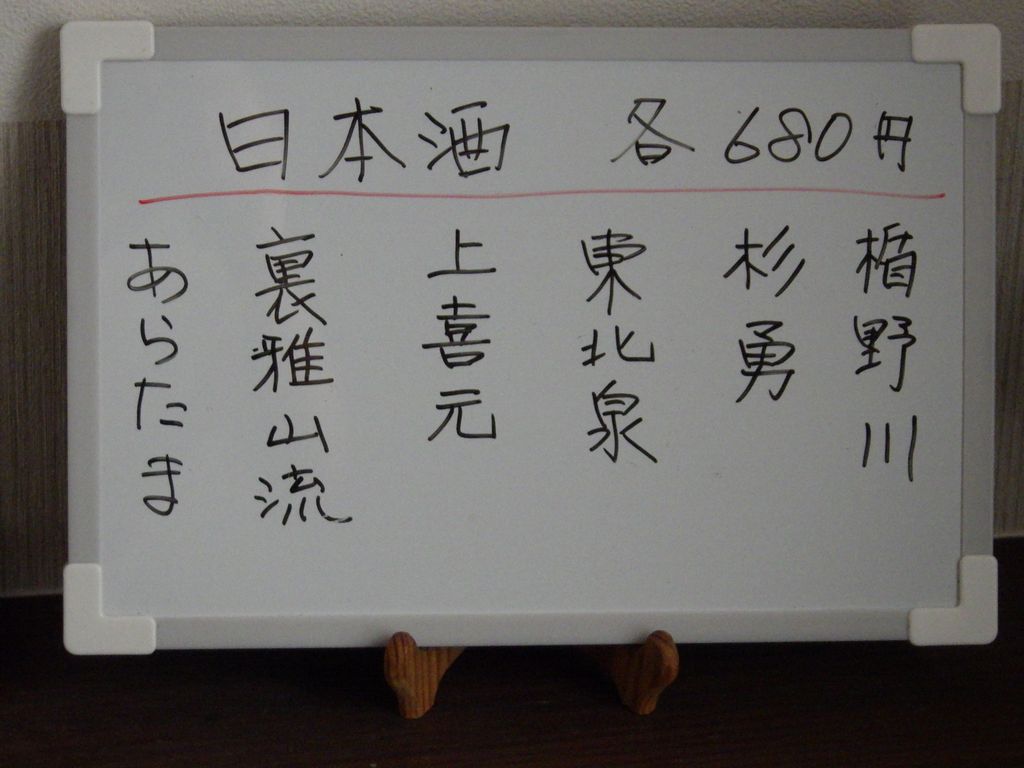 日本酒 各680円
楯野川
杉勇
東北泉
上喜元
裏雅山流
あらたま